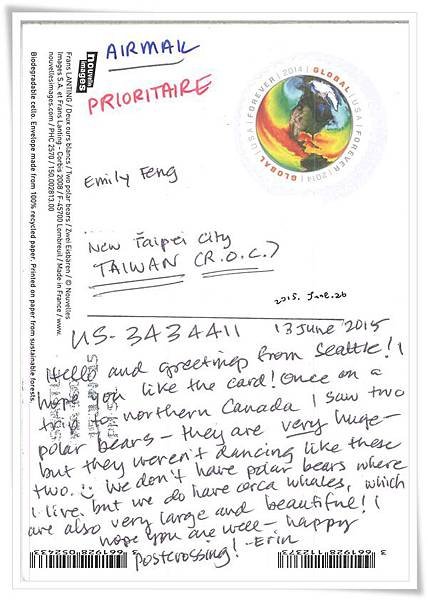 AIRMAIL
PRIORITAIRE
GLOBAL | USA | FOREVER | 2014 | GLOBAL | USA | FOREVER | 2014 |
Emily Feng
New Taipei City
TAIWAN (R.O.C.)
2015. June. 26
US-3434411 13 June 2015
Hello and greetings from Seattle! I
hope you like the card! Once on a
trip to northern Canada I saw two
polar bears - they are very huge -
but they weren't dancing like these
two. We don't have polar bears where
I live, but we do have orca whales, which
are also very large and beautiful! I
hope you are well - happy
postcrossing! - Erin
nouvelles
images
Frans LANTING / Deux ours blancs / Two polar bears / Zwei Eisbären / © Nouvelles
Images S.A. et Frans Lanting - Corbis 2008 / F-45700 Lombreuil / Made in France / www.
nouvellesimages.com / PHC 2570 / 150.002813.00
Biodegradable cello. Envelope made from 100% recycled paper. Printed on paper from sustainable forests.
3 661928 052433
3 661928 112373